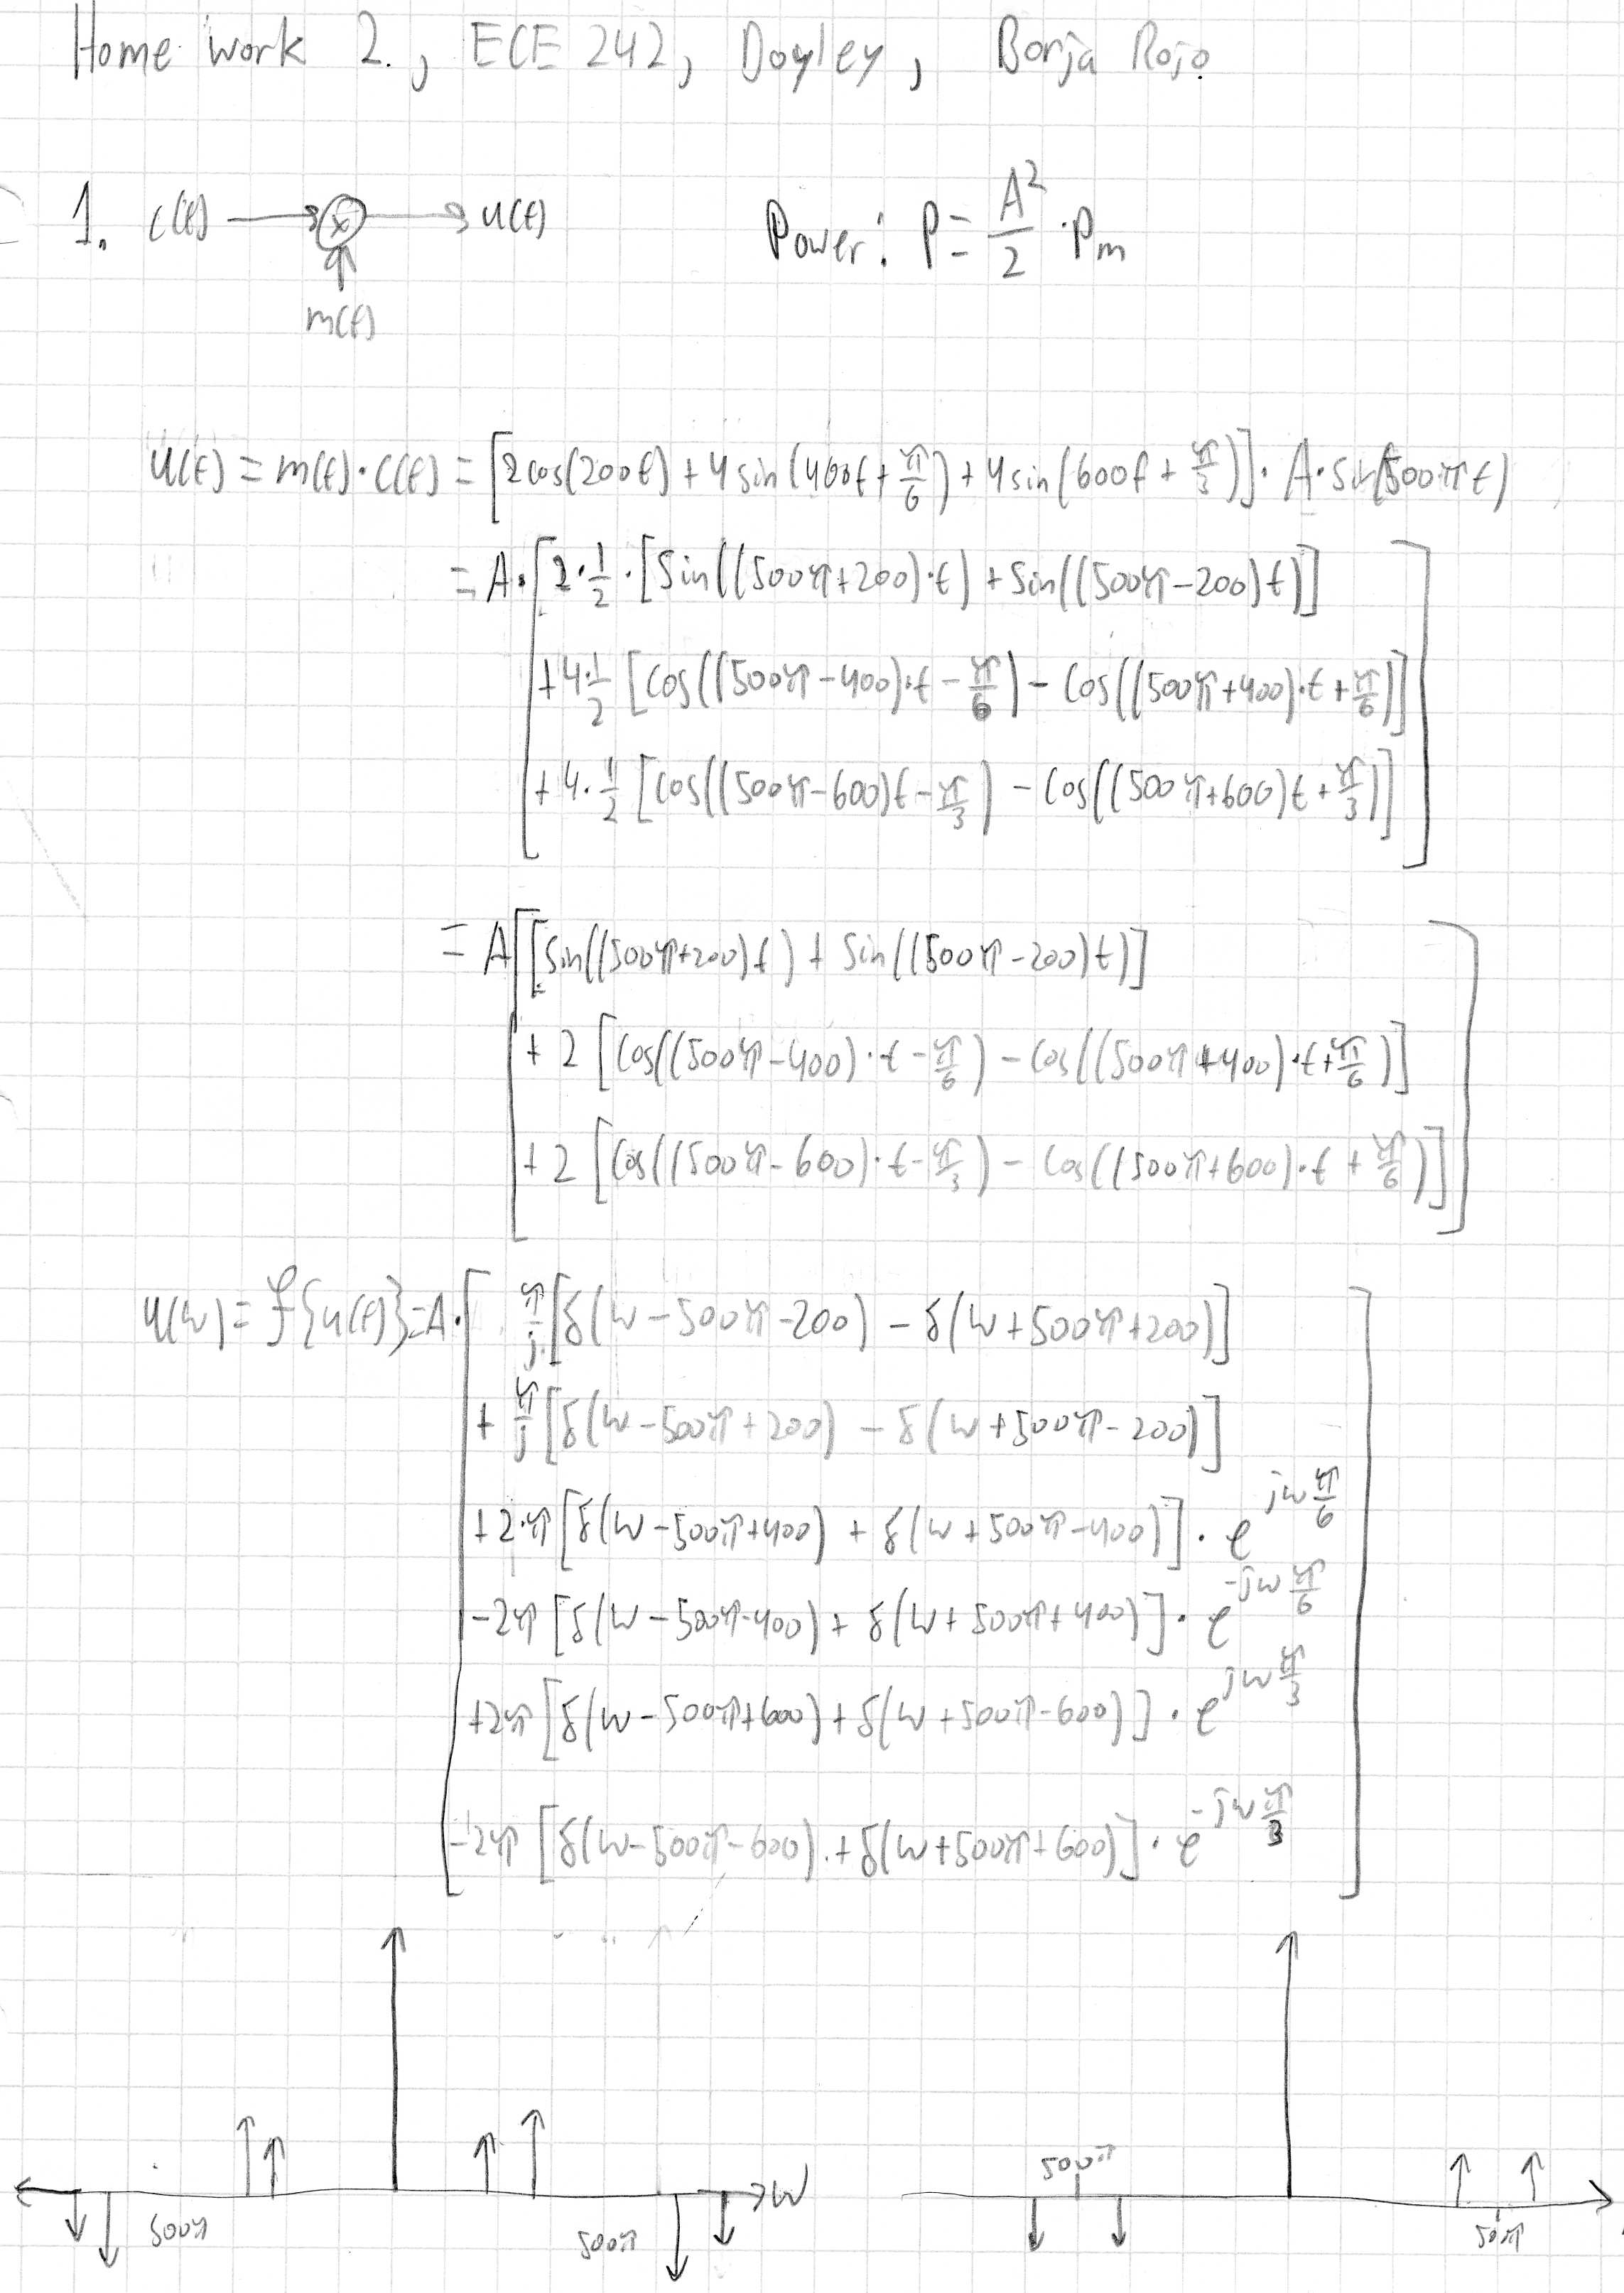 Home work 2., ECE 242, Doyley, Borja Rojo.
1. c(t) → ⊗ → u(t)
m(t)
Power: P = A²/2 · Pm
u(t) = m(t)·c(t) = [2cos(200t) + 4sin(400t + π/6) + 4sin(600t + π/3)] · A·sin(500πt)
= A·[2·1/2·[Sin((500π+200)·t) + sin((500π-200)t)]
+4·1/2 [cos((500π-400)·t - π/6) - cos((500π+400)·t + π/6)]
+4·1/2 [cos((500π-600)t - π/3) - cos((500π+600)t + π/3)]]
= A[[sin((500π+200)t) + sin((500π-200)t)]
+ 2 [cos((500π-400)·t - π/6) - cos((500π+400)·t + π/6)]
+ 2 [cos((500π-600)·t - π/3) - cos((500π+600)·t + π/6)]]
U(w) = F{u(t)} = A·[π/j [δ(w-500π-200) - δ(w+500π+200)]
+ π/j [δ(w-500π+200) - δ(w+500π-200)]
+2·π [δ(w-500π+400) + δ(w+500π-400)] · e^(jwπ/6)
-2π [δ(w-500π-400) + δ(w+500π+400)] · e^(-jwπ/6)
+2π [δ(w-500π+600) + δ(w+500π-600)] · e^(jwπ/3)
-2π [δ(w-500π-600) + δ(w+500π+600)] · e^(-jwπ/3)]
500π 500π w
500π 500π